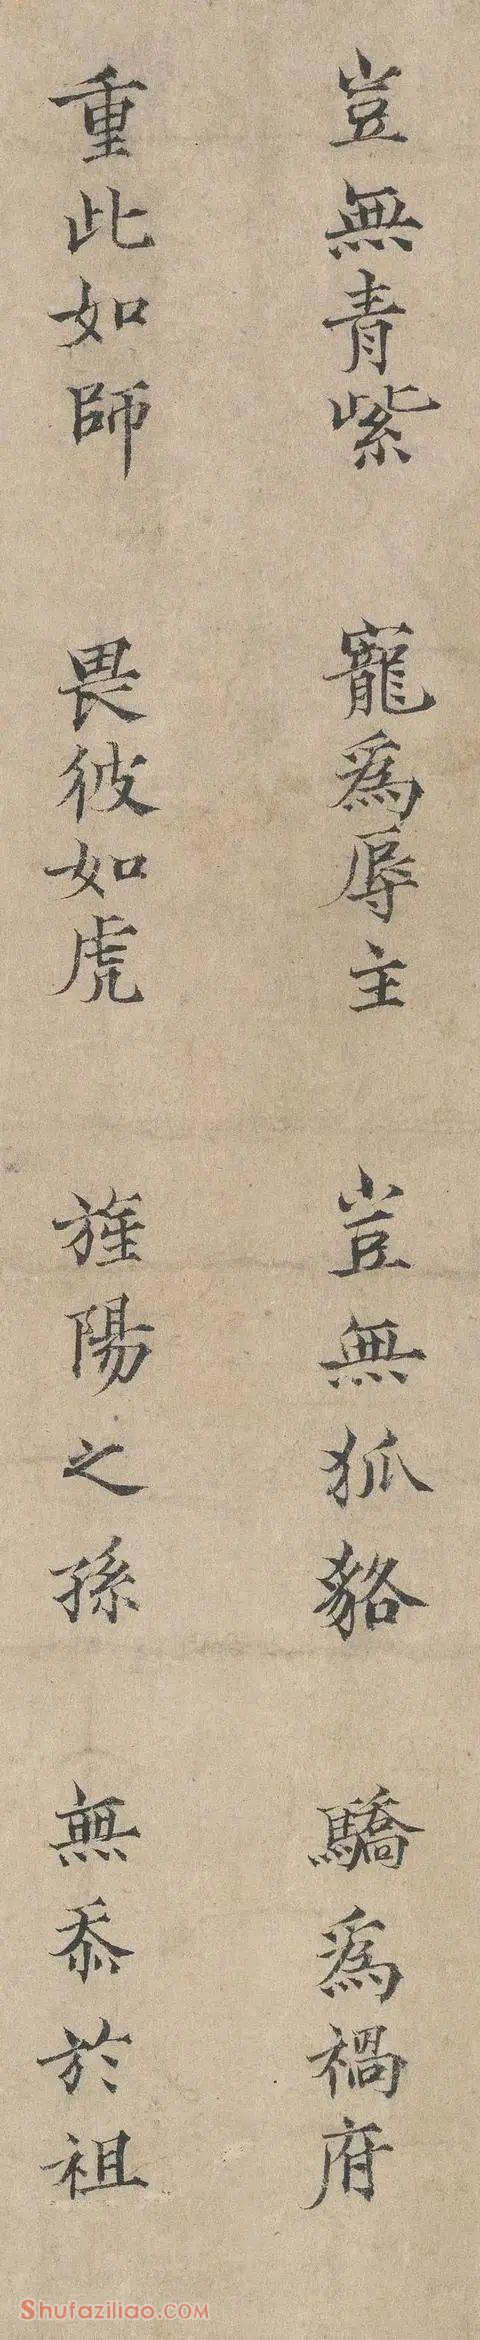 豈無青紫 寵爲辱主 豈無狐貉 驕爲禍府
重此如師 畏彼如虎 旌陽之孫 無忝於祖
Shufaziliao.COM